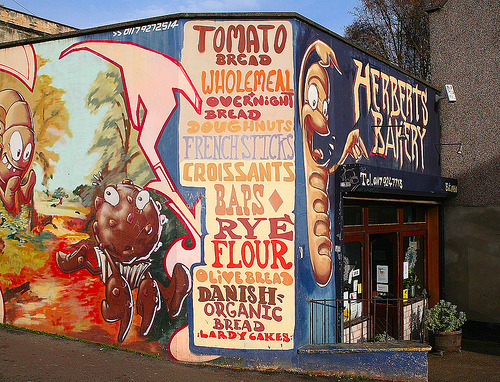 0117 9272514
TOMATO
BREAD
WHOLEMEAL
OVERNIGHT
BREAD
DOUGHNUTS
FRENCH STICKS
CROISSANTS
BAPS
RYE
FLOUR
OLIVE BREAD
DANISH
ORGANIC
BREAD
LARDY CAKES
HERBERT'S
BAKERY
Tel. 0117 924 7713